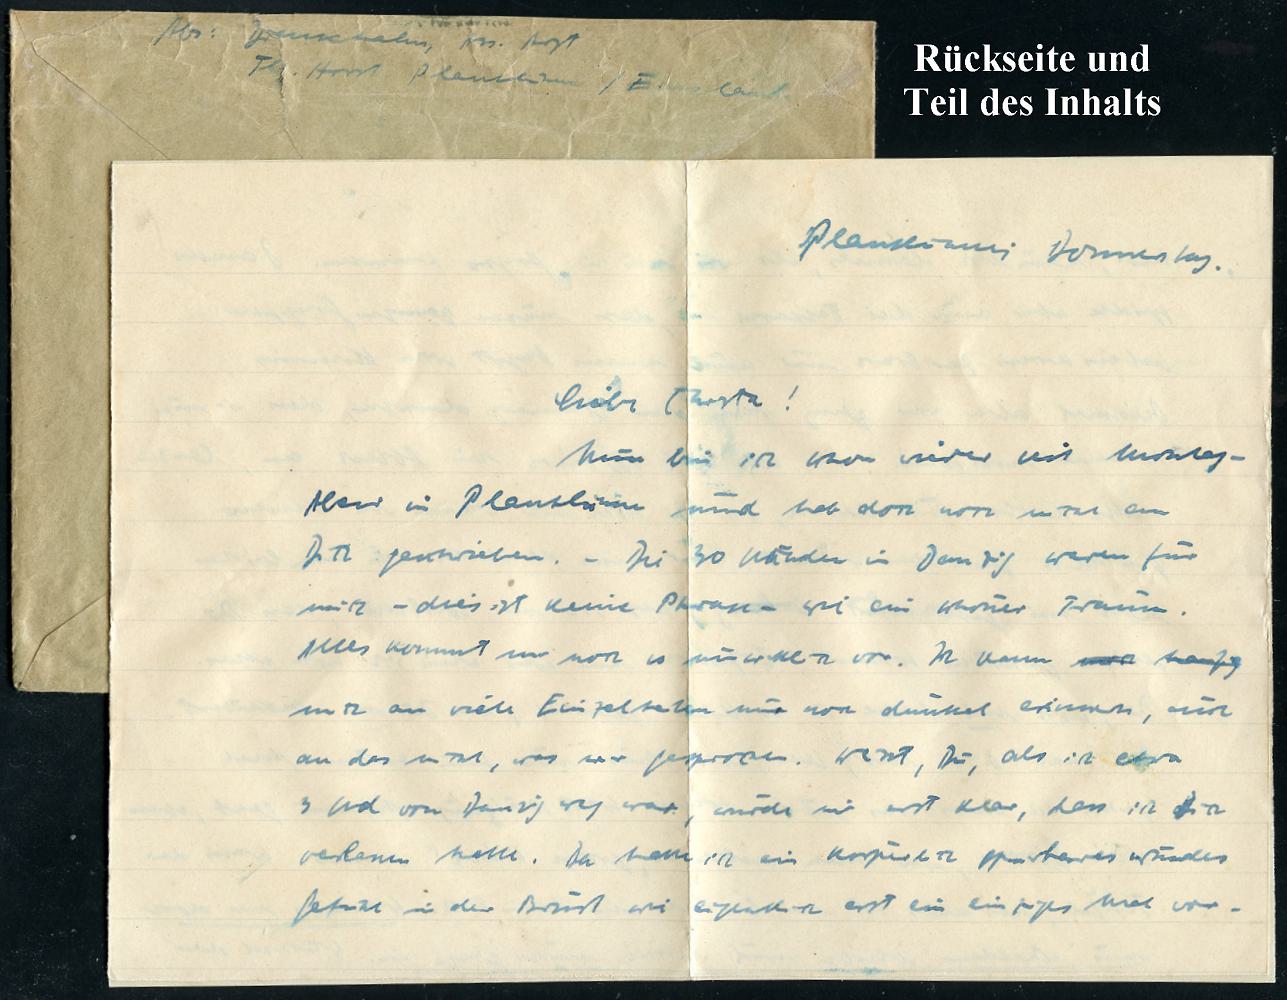 Rückseite und
Teil des Inhalts
Abs: Ass. Arzt
Fl. Horst Plantlünne / Emsland
Plantlünne, Donnerstag.
Liebe Christa!
Nun bin ich schon wieder seit Montag-
Abend in Plantlünne und hab doch noch nicht an
Dich geschrieben. - Die 30 Stunden in Danzig waren für
mich - dies ist keine Phrase - wie ein schöner Traum.
Alles kommt mir noch so unwirklich vor. Ich kann
mich an viele Einzelheiten nur noch dunkel erinnern, auch
an das nicht, was wir gesprochen. Weisst, Du, als ich etwa
3 Std von Danzig weg war, wurde mir erst klar, dass ich Dich
verlassen hatte. Da hatte ich ein körperlich spürbares wundes
Gefühl in der Brust wie eigentlich erst ein einziges Mal vor-